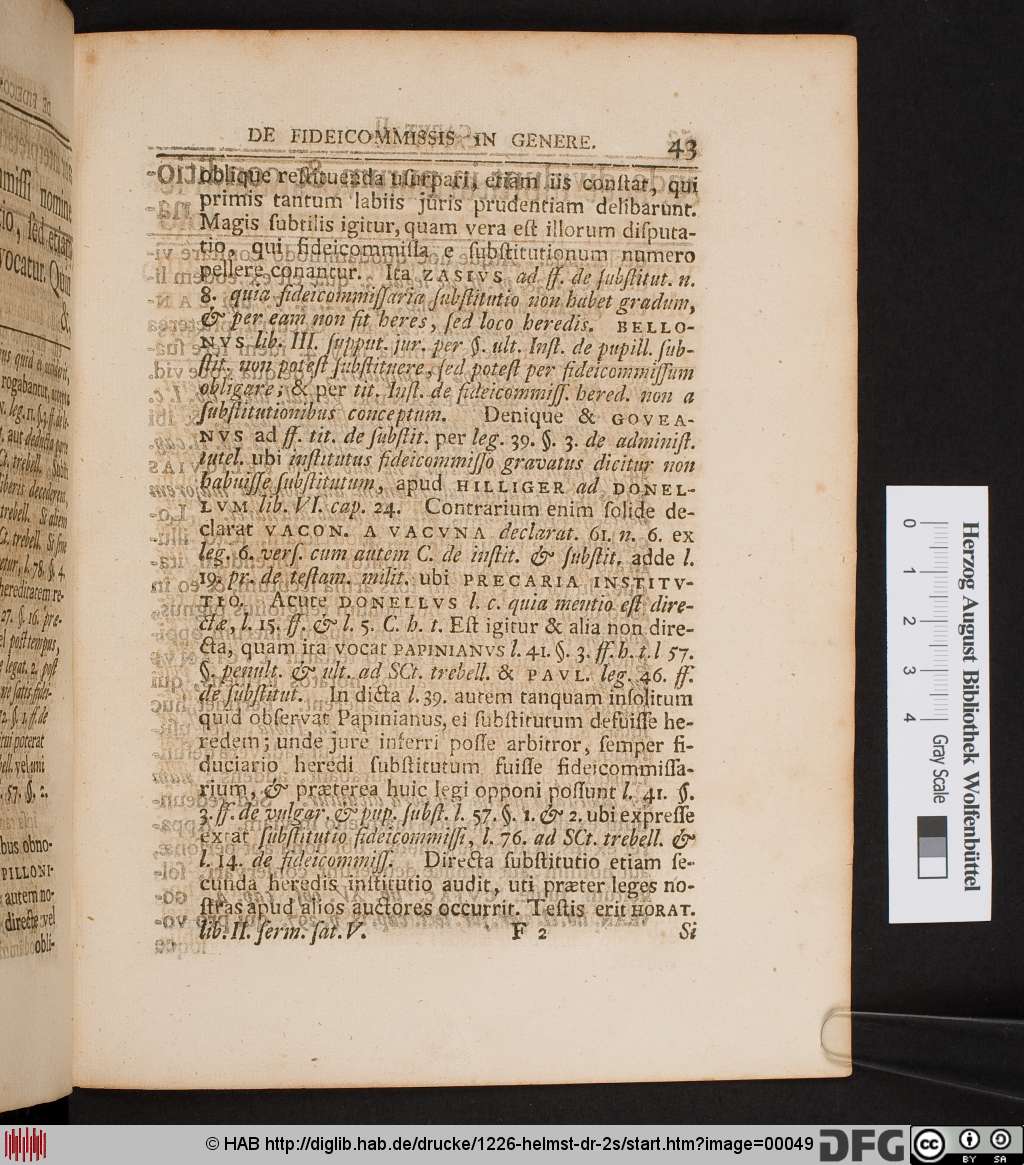 DE FIDEICOMMISSIS IN GENERE. 43
oblique restituenda usurpari, etiam iis constat, qui
primis tantum labiis juris prudentiam delibarunt.
Magis subtilis igitur, quam vera est illorum disputa-
tio, qui fideicommissa e substitutionum numero
pellere conantur. Ita ZASIVS ad ff. de substitut. n.
8. quia fideicommissaria substitutio non habet gradum,
& per eam non fit heres, sed loco heredis. BELLO-
NVS lib. III. supput. jur. per §. ult. Inst. de pupill. sub-
stit. non potest substituere, sed potest per fideicommissum
obligare; & per tit. Inst. de fideicommiss. hered. non a
substitutionibus conceptum. Denique & GOVEA-
NVS ad ff. tit. de substit. per leg. 39. §. 3. de administ.
tutel. ubi institutus fideicommisso gravatus dicitur non
habuisse substitutum, apud HILLIGER ad DONEL-
LVM lib. VI. cap. 24. Contrarium enim solide de-
clarat VACON. A VACVNA declarat. 61. n. 6. ex
leg. 6. vers. cum autem C. de instit. & substit. adde l.
19. pr. de testam. milit. ubi PRECARIA INSTITV-
TIO. Acute DONELLVS l. c. quia mentio est dire-
ctæ, l. 15. ff. & l. 5. C. h. t. Est igitur & alia non dire-
cta, quam ita vocat PAPINIANVS l. 41. §. 3. ff. h. t. l 57.
§. penult. & ult. ad SCt. trebell. & PAVL. leg. 46. ff.
de substitut. In dicta l. 39. autem tanquam insolitum
quid observat Papinianus, ei substitutum defuisse he-
redem; unde jure inferri posse arbitror, semper fi-
duciario heredi substitutum fuisse fideicommissa-
rium, & præterea huic legi opponi possunt l. 41. §.
3. ff. de vulgar. & pup. subst. l. 57. §. 1. & 2. ubi expresse
extat substitutio fideicommissi, l. 76. ad SCt. trebell. &
l. 14. de fideicommiss. Directa substitutio etiam se-
cunda heredis institutio audit, uti præter leges no-
stras apud alios auctores occurrit. Testis erit HORAT.
lib. II. serm. sat. V. F 2 Si
Herzog August Bibliothek Wolfenbüttel
0 1 2 3 4 Gray Scale
© HAB http://diglib.hab.de/drucke/1226-helmst-dr-2s/start.htm?image=00049
DFG cc BY SA